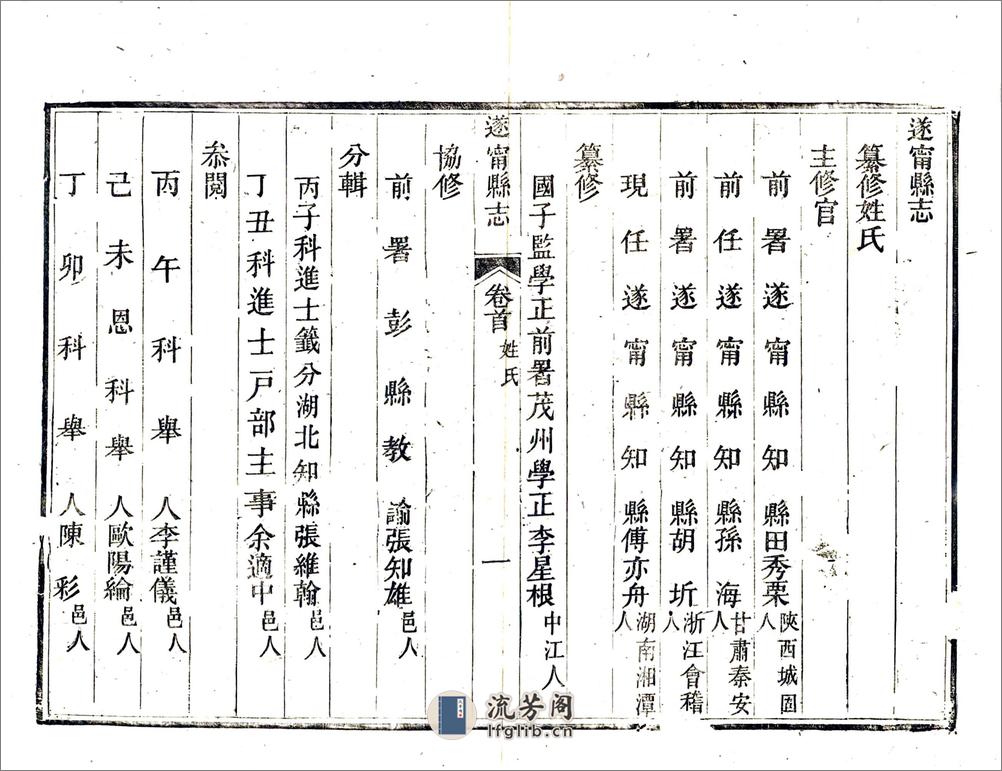 遂甯縣志
纂修姓氏
主修官
前署遂甯縣知縣田秀栗陝西城固人
前任遂甯縣知縣孫海甘肅秦安人
前署遂甯縣知縣胡圻浙江會稽人
現任遂甯縣知縣傅亦舟湖南湘潭人
纂修
國子監學正前署茂州學正李星根中江人
遂甯縣志 卷首 姓氏 一
協修
前署彭縣教諭張知雄邑人
分輯
丙子科進士籤分湖北知縣張維翰邑人
丁丑科進士戶部主事余適中邑人
叅閱
丙午科舉人李謹儀邑人
己未恩科舉人歐陽綸邑人
丁卯科舉人陳彩邑人
流芳阁
lfglib.cn